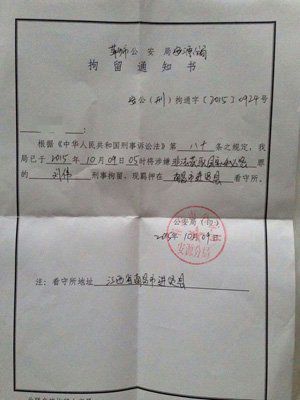 萍乡市公安局安源分局
拘留通知书
安公(刑)拘通字[2015]0924号
根据《中华人民共和国刑事诉讼法》第八十条之规定,我
局已于2015年10月09日05时将涉嫌非法获取国家秘密罪
的刘伟刑事拘留,现羁押在南昌市进贤县看守所。
公安局(印)
2015年10月09日
注:看守所地址江西省南昌市进贤县